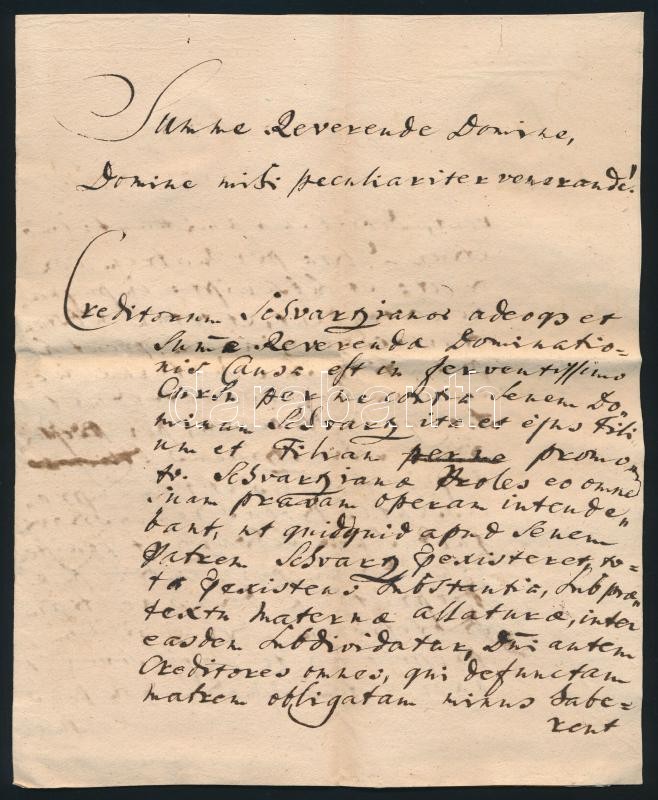 Summe Reverende Domine,
Domine mihi peculiariter venerande!
Creditorum Schvartzianos adeoqs et
Summe Reverendæ Dominatio=
nis Causa est in ferventissimo
Cursu per me contra Senem Do„
minum Schvartz ita et ejus Fili
um et Filiam per me promo
tv. Schvartzianæ Proles eo omnem
suam pravam operam intende„
bant, ut quidquid apud Senem
Patrem Schvartz pexisteret, to„
ta pexistens substantia, sub præ„
textu maternæ allaturæ, inter
easdem subdividatur, Dni autem
Creditores omnes, qui defunctam
matrem obligatam minus habe=
rent
darabanth